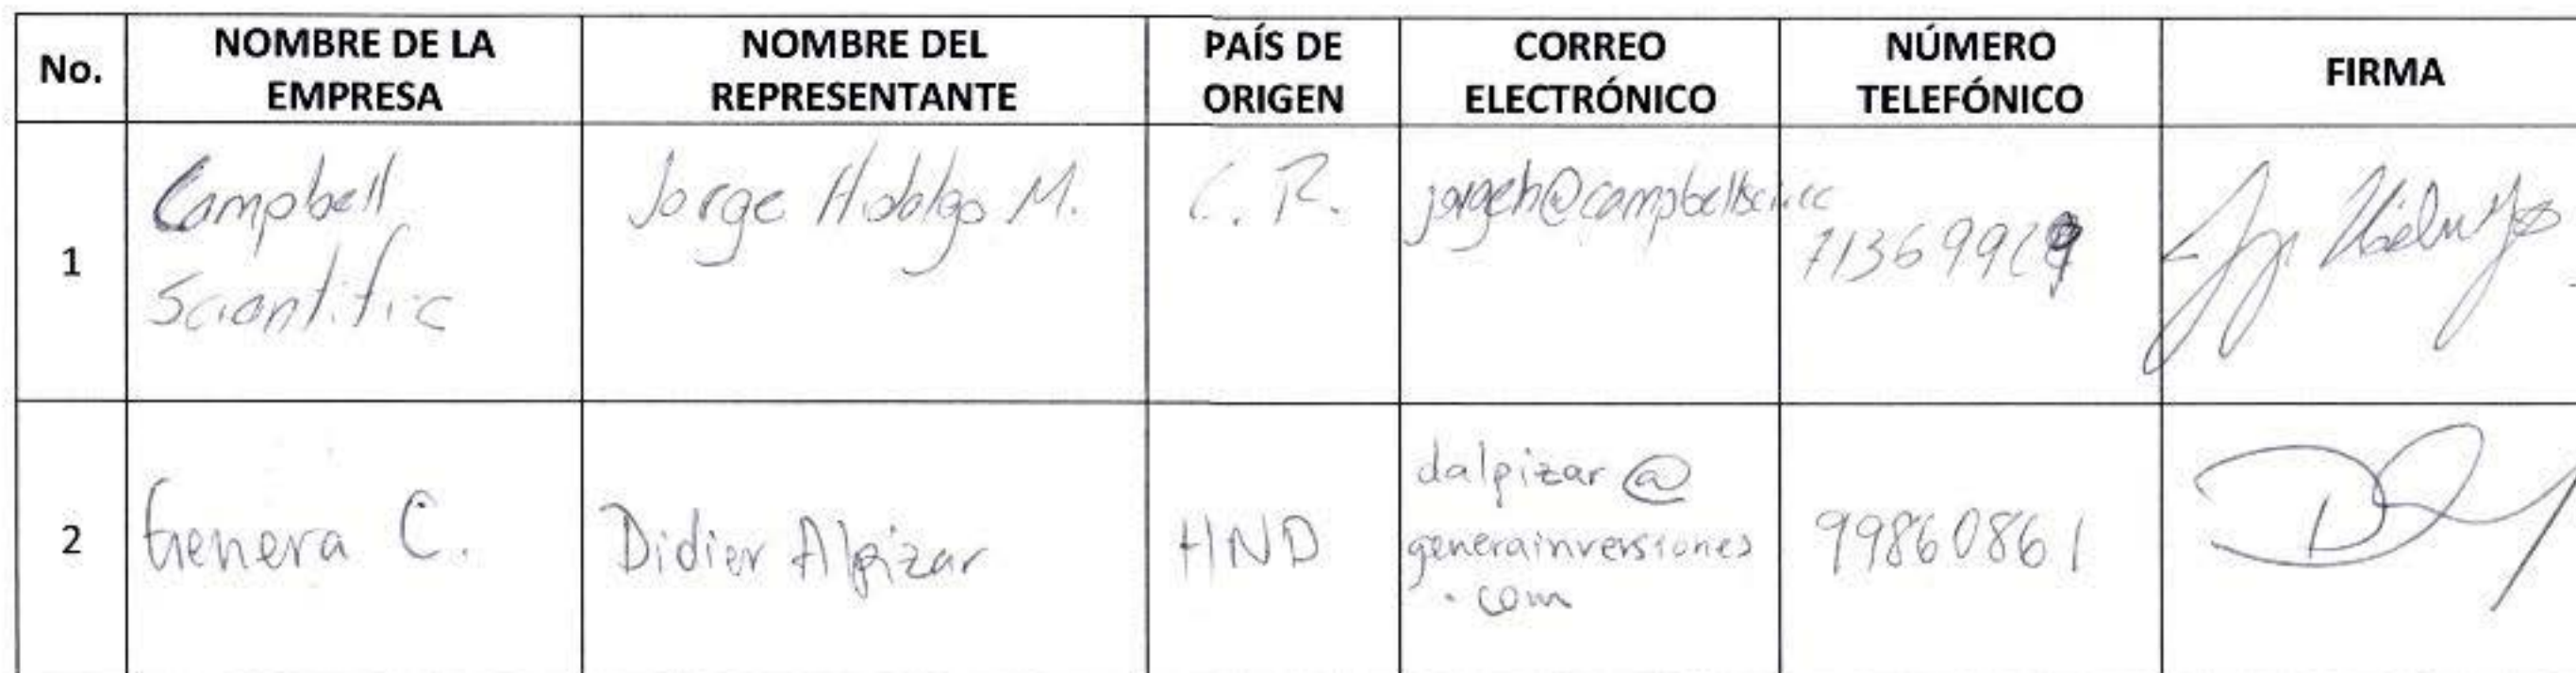 No.
NOMBRE DE LA
EMPRESA
NOMBRE DEL
REPRESENTANTE
PAÍS DE
ORIGEN
CORREO
ELECTRÓNICO
NÚMERO
TELEFÓNICO
FIRMA
1
Campbell
Scientific
Jorge Hidalgo M.
C. R.
2
Genera C.
Didier Alpizar
HND
dalpizar @
generainversiones
.com
99860861